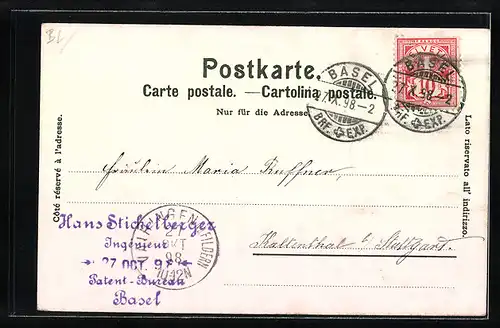 BL
HELVETIA
10
BASEL
27.X.98-2
BRF. EXP.
BASEL
27.X.98-2
BRF. EXP.
Postkarte.
Carte postale. — Cartolina postale.
Nur für die Adresse.
Côté réservé à l'adresse.
Lato riservato all' indirizzo.
Fräulein Maria Ruffner,
Kaltenthal b/ Stuttgart.
Hans Stickelberger
Ingenieur
27 OCT. 98
Patent-Bureau
Basel
VAIHINGEN FILDERN
27
OKT
98